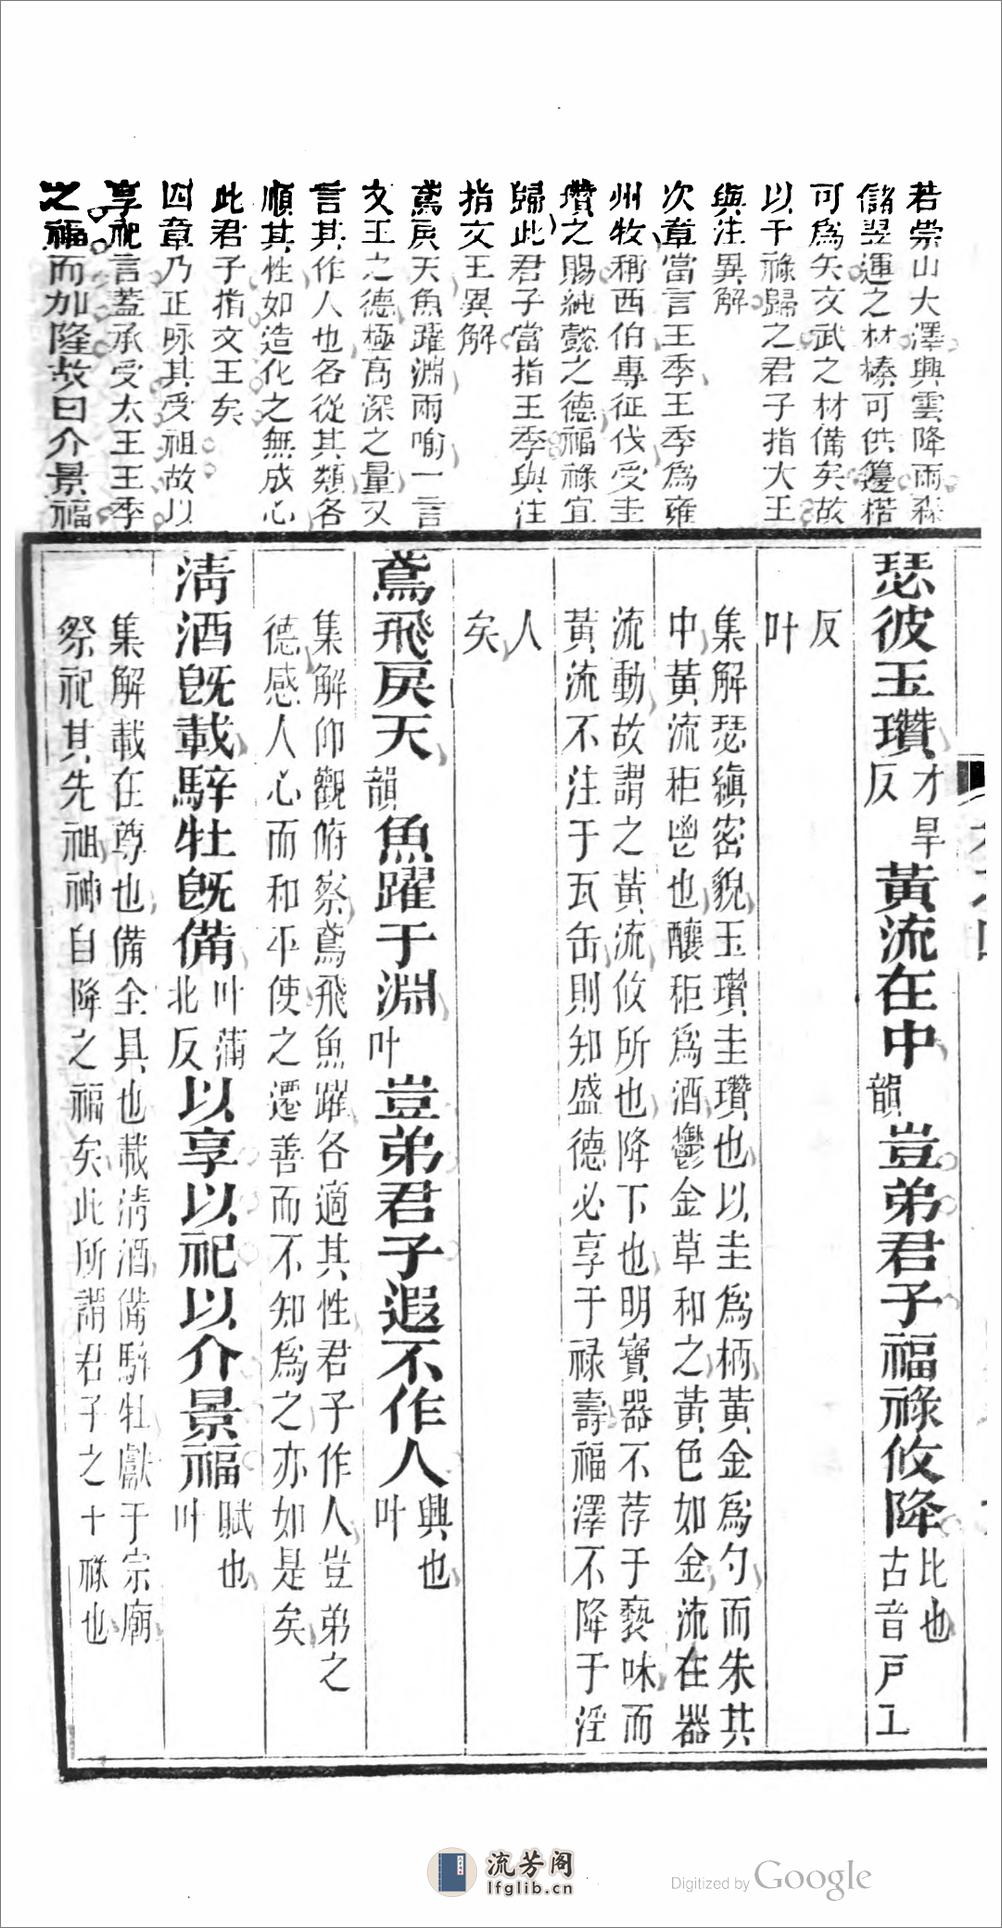 若崇山大澤興雲降雨森
儲翌運之材榛可供籩楛
可爲矢文武之材備矣故
以干祿歸之君子指大王
與注異解
次章當言王季王季爲雍
州牧稱西伯專征伐受圭
瓚之賜純懿之德福祿宜
歸此君子當指王季與注
指文王異解
鳶戾天魚躍淵兩喻一言
文王之德極高深之量又
言其作人也各從其類各
順其性如造化之無成心
此君子指文王矣
四章乃正咏其受祖故以
享祀言蓋承受太王王季
之福而加隆故曰介景福
瑟彼玉瓚才旱反黃流在中韻豈弟君子福祿攸降比也古音戸工
反
叶
集解瑟縝密貌玉瓚圭瓚也以圭爲柄黃金爲勺而朱其
中黃流秬鬯也釀秬爲酒鬱金草和之黃色如金流在器
流動故謂之黃流攸所也降下也明寶器不荐于褻味而
黃流不注于瓦缶則知盛德必享于祿壽福澤不降于淫
人
矣
鳶飛戾天韻魚躍于淵叶豈弟君子遐不作人興也叶
集解仰觀俯察鳶飛魚躍各適其性君子作人豈弟之
德感人心而和平使之遷善而不知爲之亦如是矣
清酒旣載騂牡旣備叶蒲北反以享以祀以介景福賦也叶
集解載在尊也備全具也載清酒備騂牡獻于宗廟
祭祀其先祖神自降之福矣此所謂君子之干祿也
流芳阁
lfglib.cn
Digitized by Google